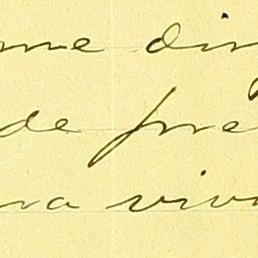 me dir
de fre
va viv